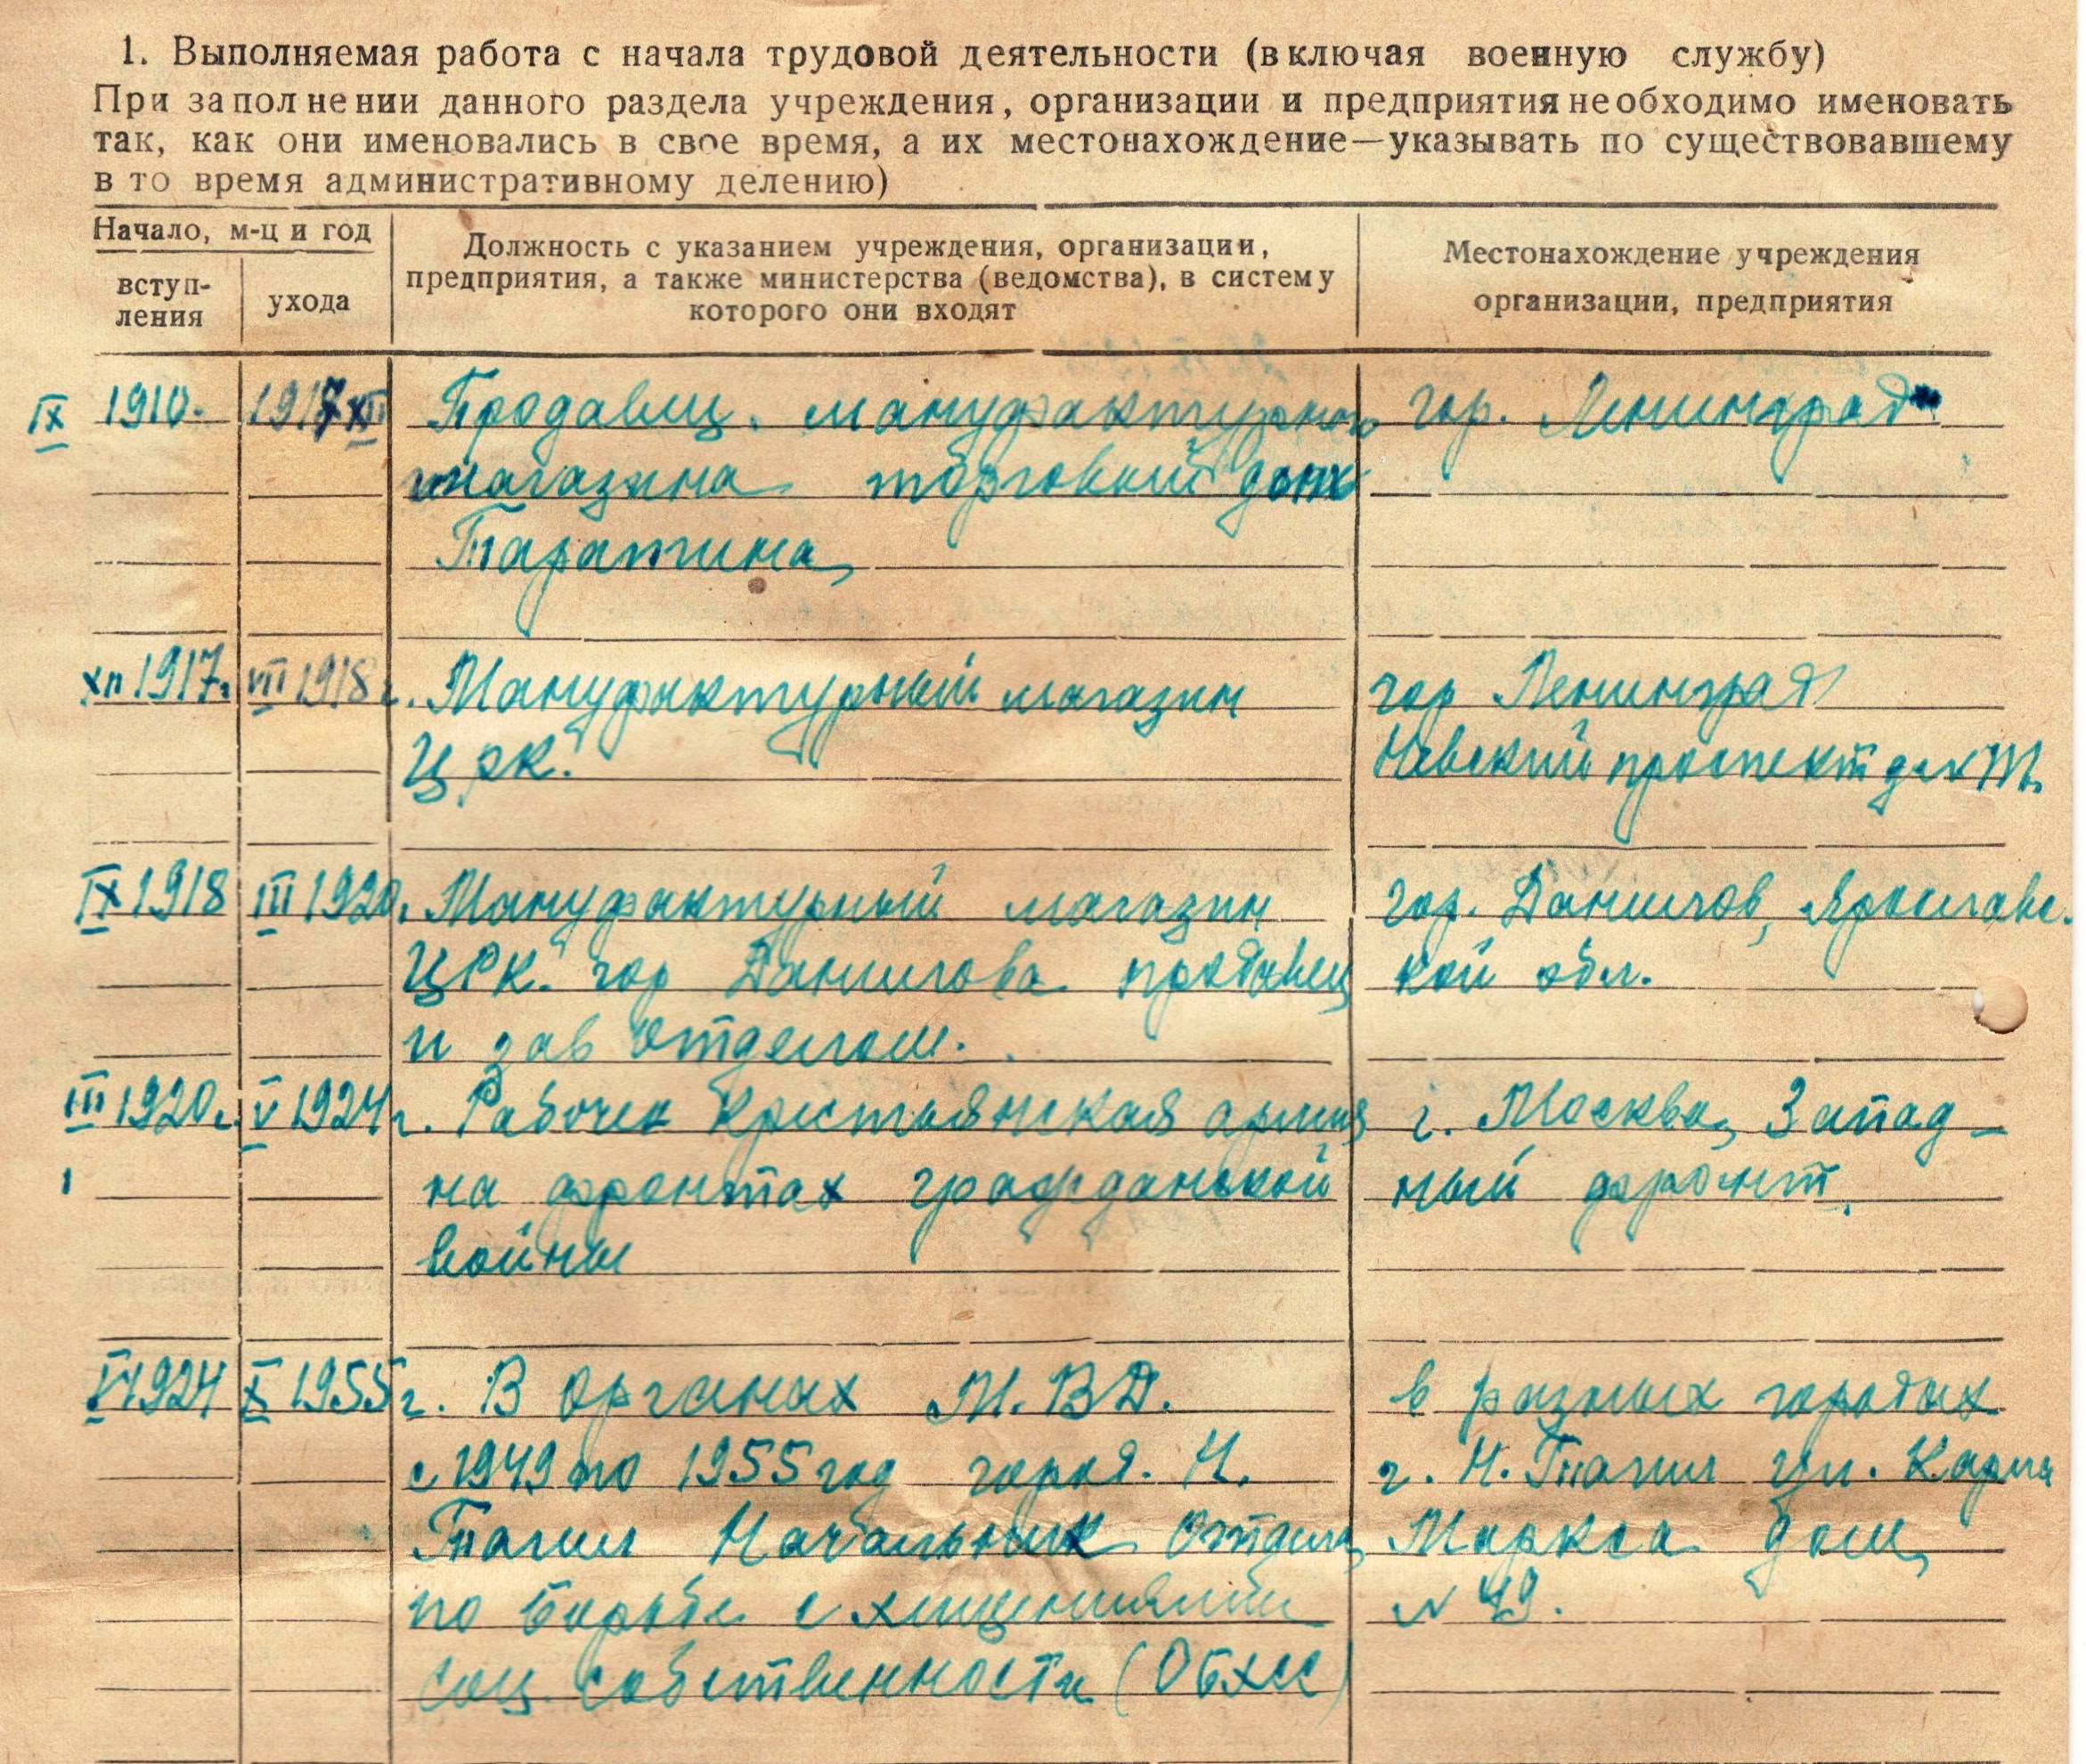 1. Выполняемая работа с начала трудовой деятельности (включая военную службу)
При заполнении данного раздела учреждения, организации и предприятия необходимо именовать
так, как они именовались в свое время, а их местонахождение—указывать по существовавшему
в то время административному делению)
Начало, м-ц и год
вступ-
ления
ухода
Должность с указанием учреждения, организации,
предприятия, а также министерства (ведомства), в систему
которого они входят
Местонахождение учреждения
организации, предприятия
IX 1910. 1917 XII Продавец. мануфактурного гор. Ленинград
магазина торговый дом
Таратина
XII 1917г. VIII 1918г. Мануфактурный магазин гор Ленинград
ЦРК. Невский проспект
IX 1918 III 1920г. Мануфактурный магазин гор. Данилов, Ярославс.
ЦРК. гор Данилова продавец кой обл.
и зав отделом.
III 1920г. V 1924г. Рабоче Крестьянская армия г. Москва, Запад-
на фронтах гражданской ный фронт.
войны
V 1924 X 1955г. В органах М.ВД. в разных городах
с 1949 по 1955 год город. Н. г. Н. Тагил ул. Карла
Тагил Начальник Отдела Маркса дом
по борьбе с хищениями № 49.
соц. собственности (ОБХСС)